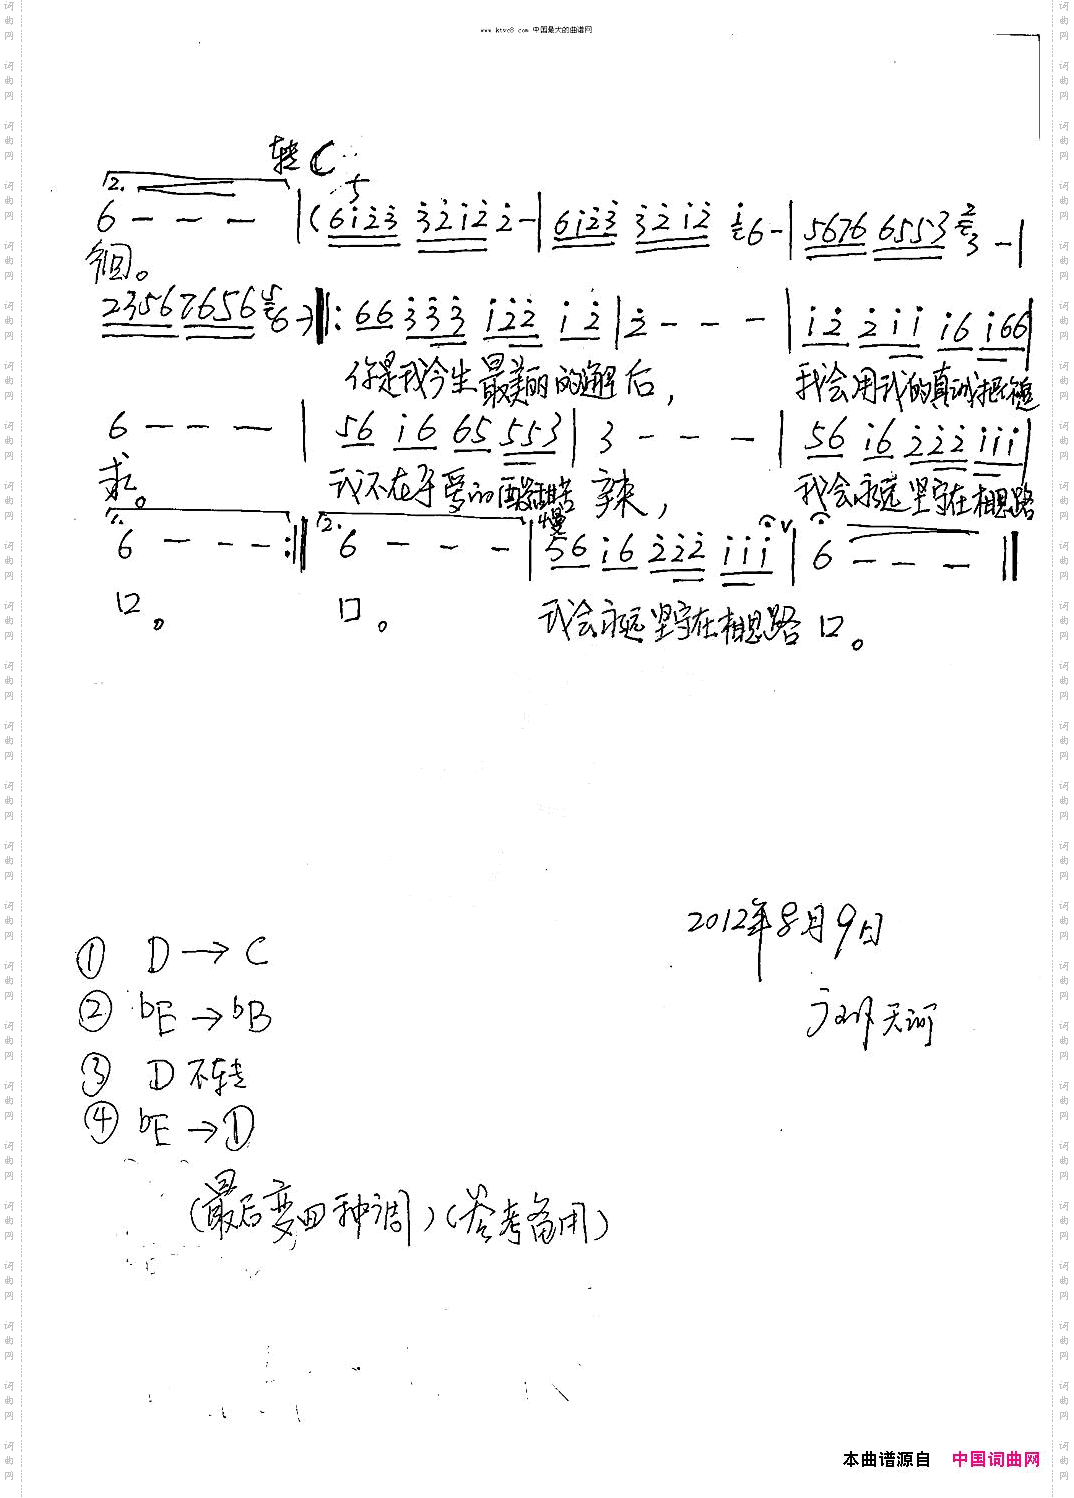 www.ktvc8.com 中国最大的曲谱网
转C
2. 5
6 — — — | ( 6i̇2̇3̇ 3̇2̇i̇2̇ 2̇ — | 6i̇2̇3̇ 3̇2̇i̇2̇ i̇ 6 — | 5676 6553 2̇ 3 — |
徊。
23567656 5 6 — ) ‖: 66 3̇3̇3̇ i̇2̇2̇ i̇2̇ | 2̇ — — — | i̇2̇ 2̇i̇i̇ i̇6 i̇66 |
你是我今生最美丽的邂后, 我会用我的真诚把你追
6 — — — | 56 i̇6 65 553 | 3 — — — | 56 i̇6 2̇2̇2̇ i̇i̇i̇ |
求。 我不在乎爱的酸甜苦辛辣, 我会永远坚守在相思路
1. 2. 慢
6 — — — :‖ 6 — — — | 56 i̇6 2̇2̇2̇ i̇i̇i̇ v | 6 — — — ‖
口。 口。 我会永远坚守在相思路口。
2012年8月9日
① D → C
② bE → bB
天河
③ D 不转
④ bE → D
(最后变四种调)(参考备用)
本曲谱源自 中国词曲网
词曲网